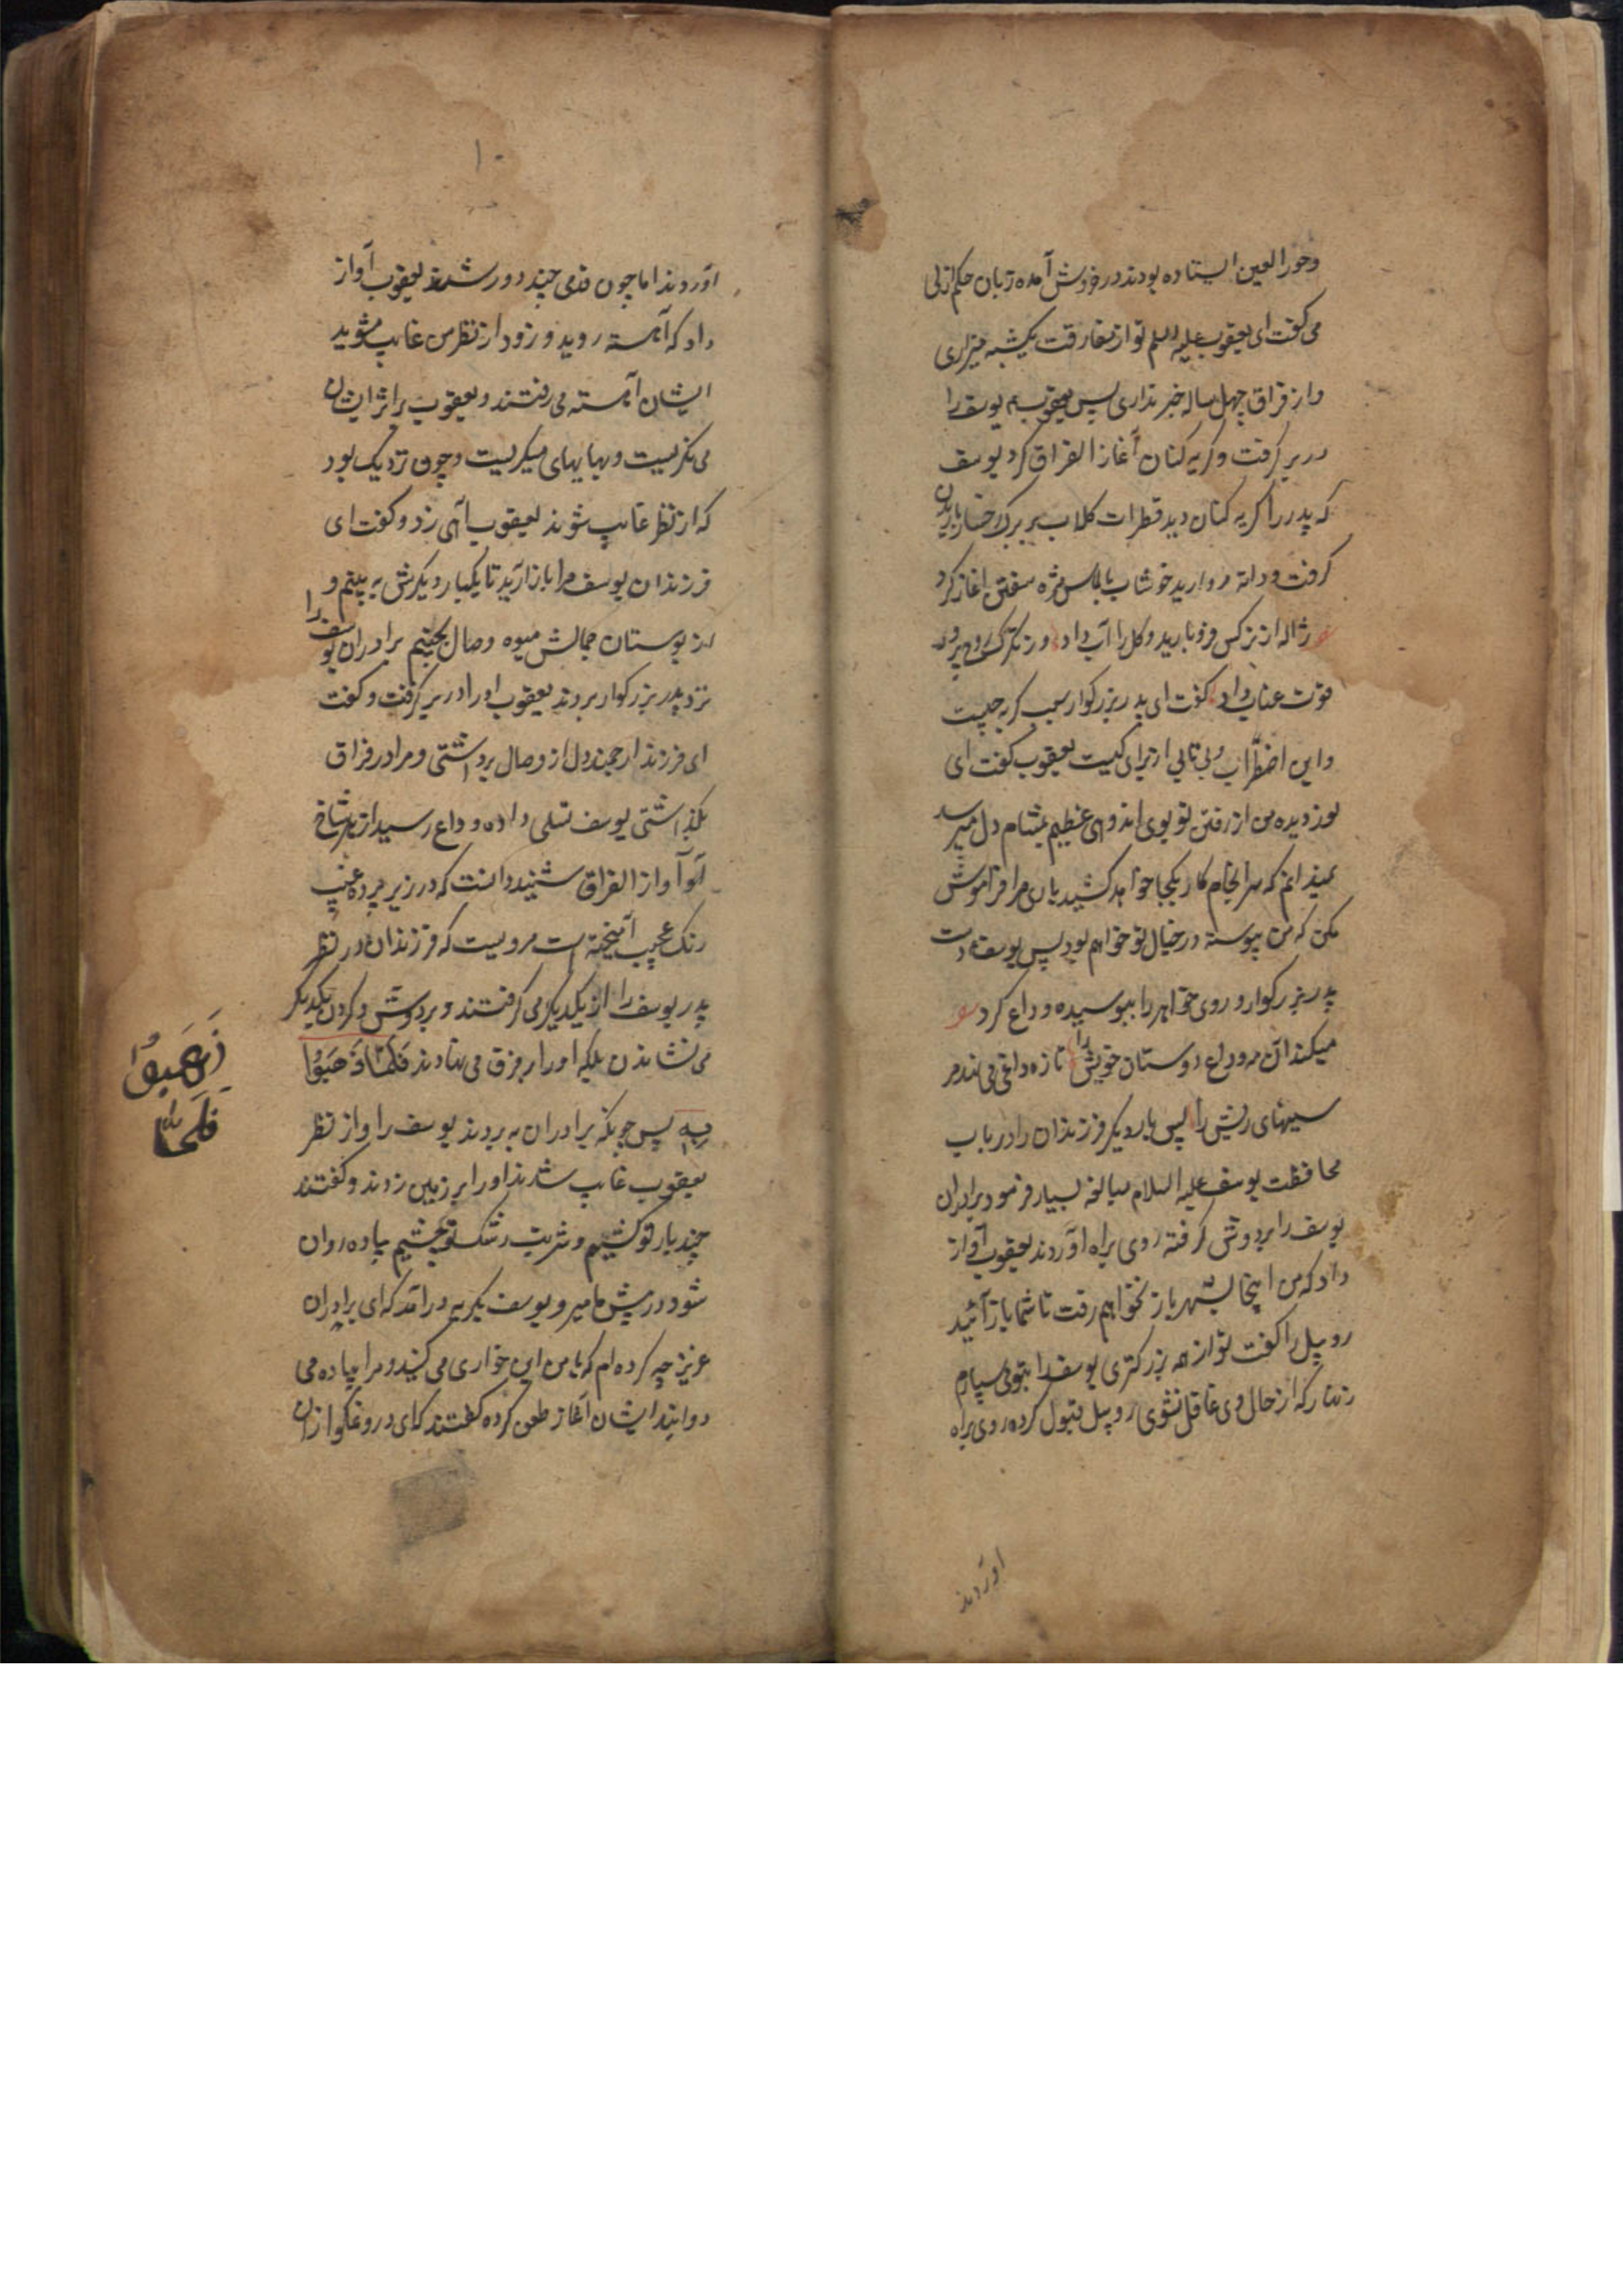 وحور العین ایستاده بودند در خروش آمده زبان حکم ازلی
می کفت ای یعقوب علیه السلم تو از مفارقت یکشبه میزاری
و از فراق چهل ساله خبر نداری پس یعقوب یوسف را
در بر کرفت و کریه کنان آغاز الفراق کرد یوسف
که پدر را کریه کنان دید قطرات کلاب بر برک رخسار باریدن
کرفت و دانه مروارید خوشاب بالماس مژه سفتن اغاز کرد
ژاله از نرکس فرو بارید و کل را آب داد وز تکرک روح پرور
کفت ای پدر بزرکوار سبب کریه چیست
و این اضطراب و بی تابی از برای کیست یعقوب کفت ای
نور دیده من از رفتن تو بوی اندوهی عظیم بمشام دل میرسد
نمیدانم که سرانجام کار بکجا خواهد کشید باری مرا فراموش
مکن که من پیوسته در خیال تو خواهم بود پس یوسف دست
پدر بزرکوار و روی خواهر را ببوسیده وداع کرد
میکند آن مه وداع دوستان خویش را تازه داغی می نهد مر
سینهای ریش را پس بار دیکر فرزندان را در باب
محافظت یوسف علیه السلام مبالغه بسیار فرمود برادران
یوسف را بر دوش کرفته روی براه آوردند یعقوب آواز
داد که من اینجا بشهر باز نخواهم رفت تا شما باز آئید
روبیل را کفت تو از همه بزرکتری یوسف را بتو می سپارم
زنهار که از حال وی غافل نشوی روبیل قبول کرده روی براه
اوردند
۱۰
آوردند اما چون قدمی چند دور شدند یعقوب آواز
داد که آهسته روید و زود از نظر من غایب مشوید
ایشان آهسته می رفتند و یعقوب بر اثر ایشان
می نکریست و بهایهای میکریست و چون نزدیک بود
که از نظر غایب شوند یعقوب آهی زد و کفت ای
فرزندان یوسف مرا باز آرید تا یکبار دیکرش به بینم و
از بوستان جمالش میوه وصال بچینم برادران یوسف را
نزد پدر بزرکوار بردند یعقوب او را در بر کرفت و کفت
ای فرزند ارجمند دل از وصال برداشتی و مرا در فراق
بکذاشتی یوسف تسلی داده وداع رسید از هر شاخ
آواز الفراق شنید دانست که در زیر پرده غیب
رنک عجیب آمیخته است مرویست که فرزندان در نظر
پدر یوسف را از یکدیکر می کرفتند و بر دوش و کردن یکدیکر
می نشاندن بلکه او را بر فرق می نهادند فَلَمّا ذَهَبُوا
بِه پس چونکه برادران به بردند یوسف را و از نظر
یعقوب غایب شدند او را بر زمین زدند و کفتند
چند بار تو کشیم و شربت رشک تو چشیم پیاده روان
شو و در پیش ما میرو یوسف بکریه در آمد که ای برادران
عزیز چه کرده ام که با من این خواری می کنید و مرا پیاده می
دوانید ایشان آغاز طعن کرده کفتند که ای دروغکو از آن
ذَهَبُوا
فَلَمّا